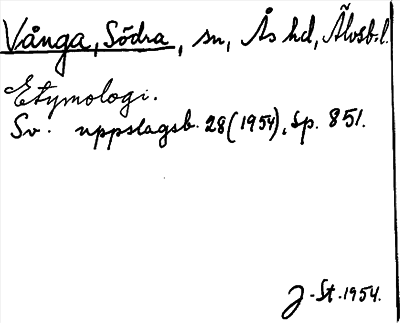 Vånga, Södra, sn, Ås hd, Älvsb. l.
Etymologi.
Sv. uppslagsb. 28 (1954), sp. 851.
J. St. 1954.